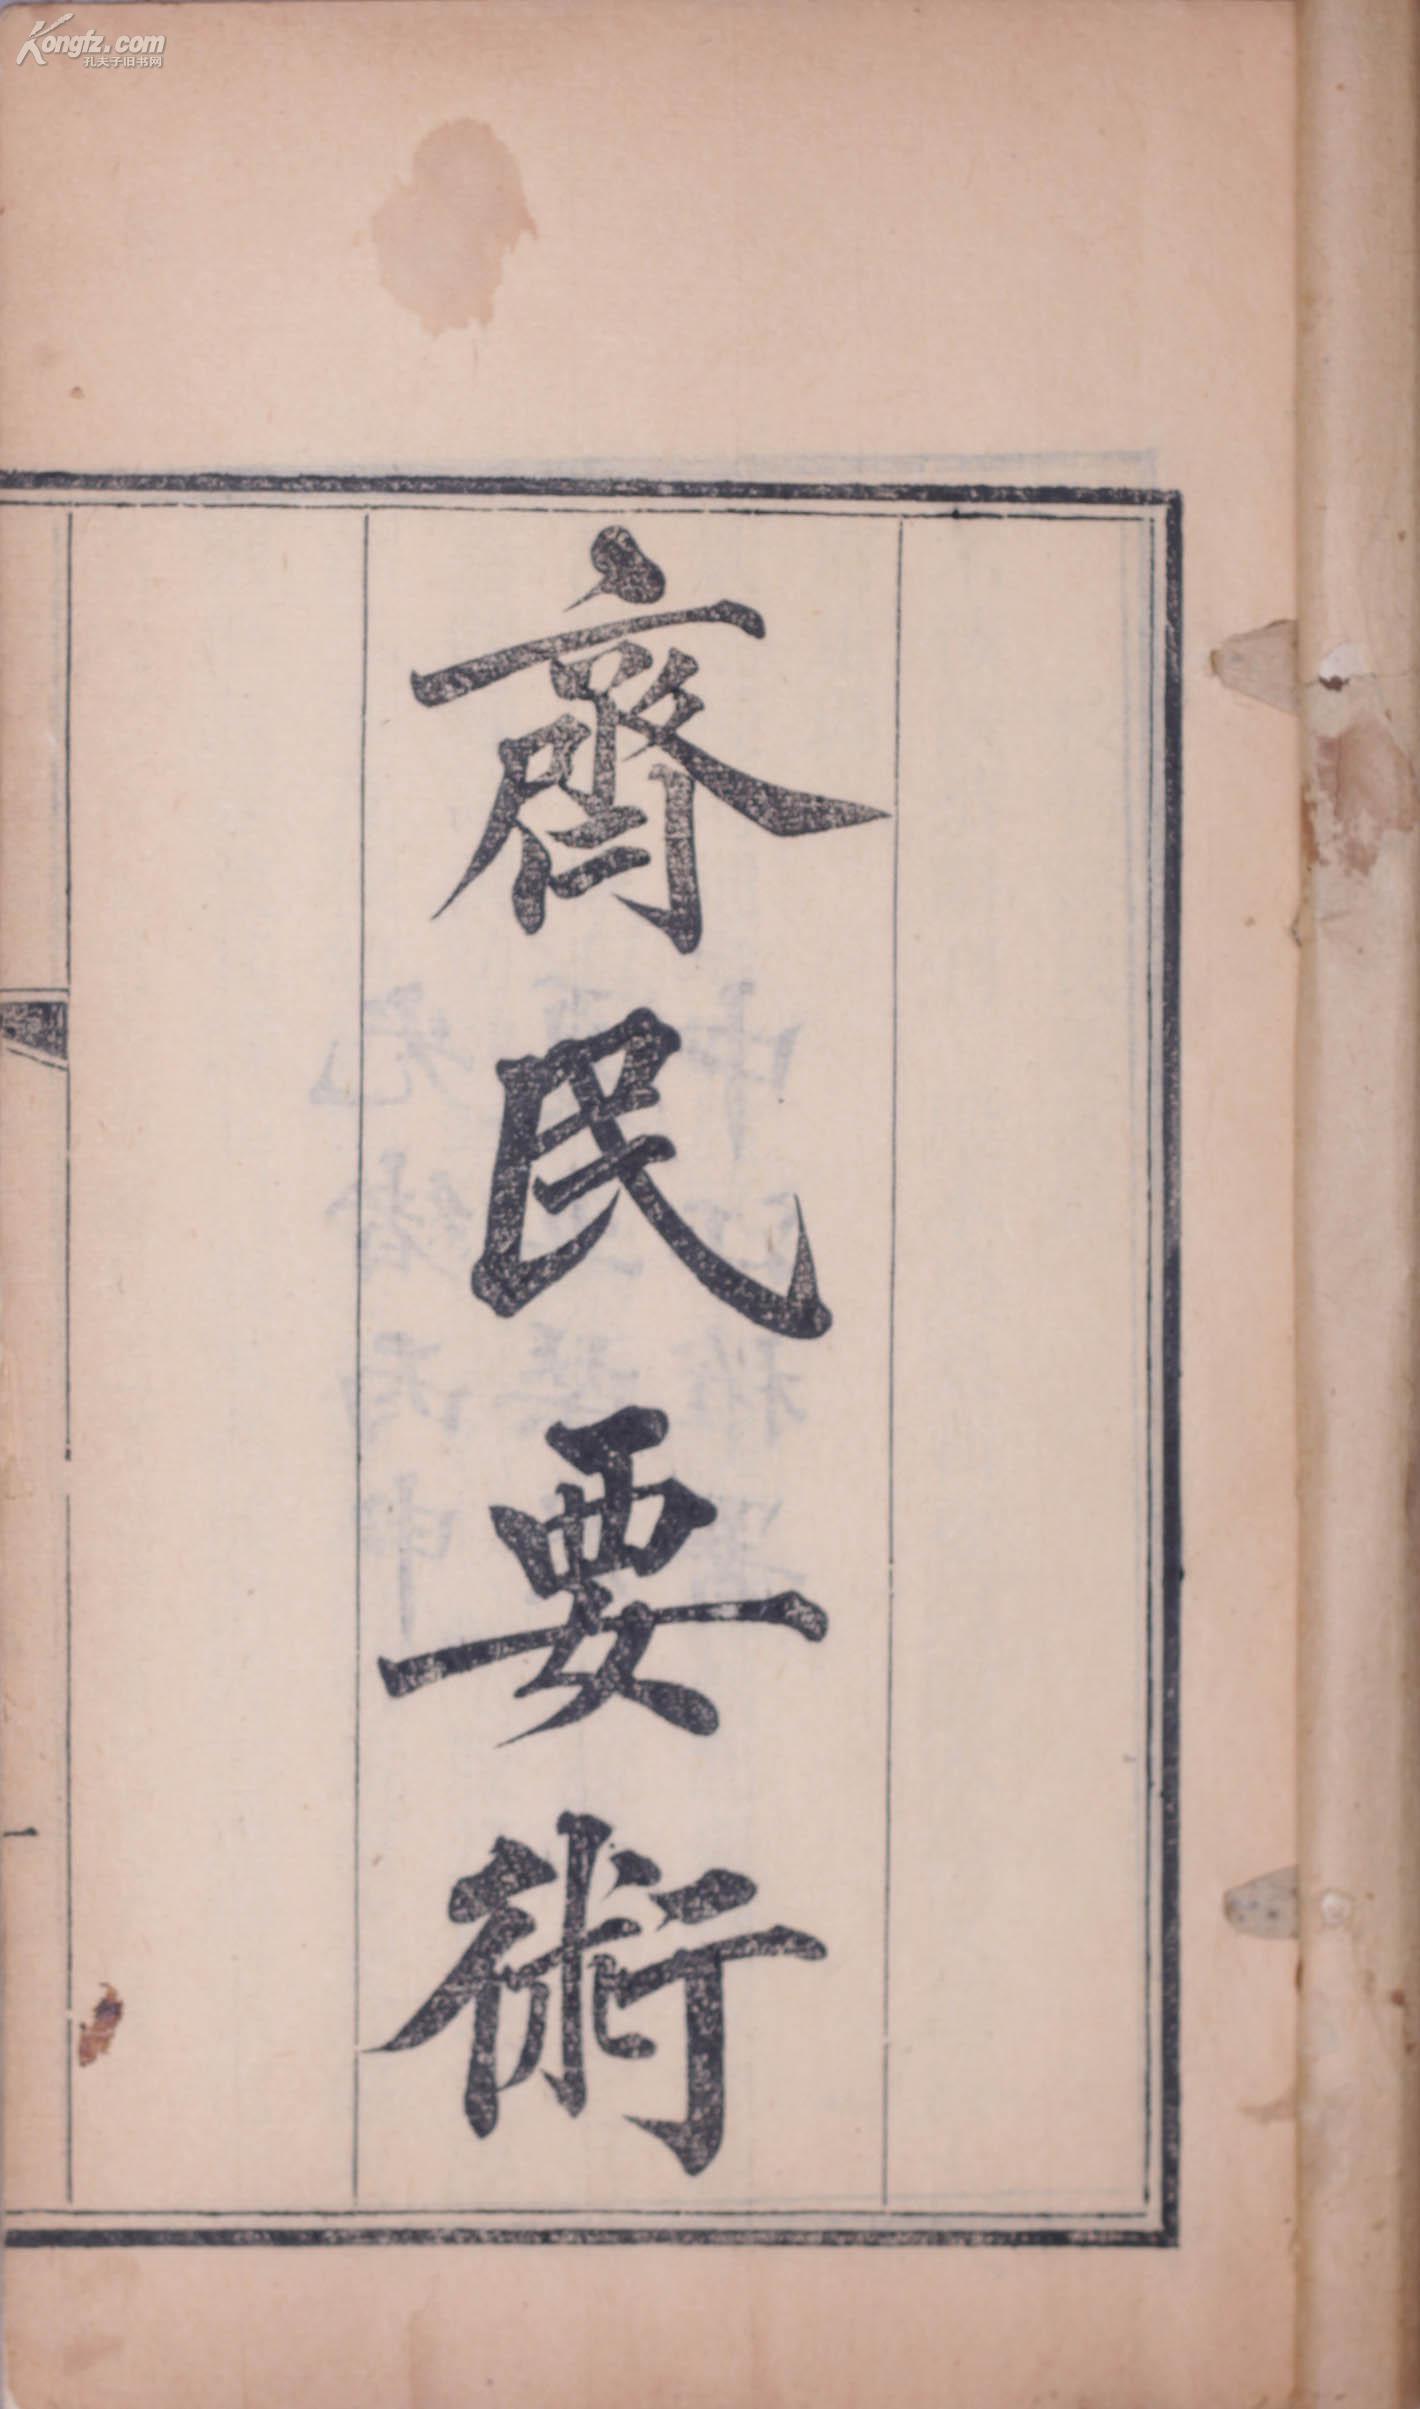 Kongfz.com
孔夫子旧书网
齊民要術
一